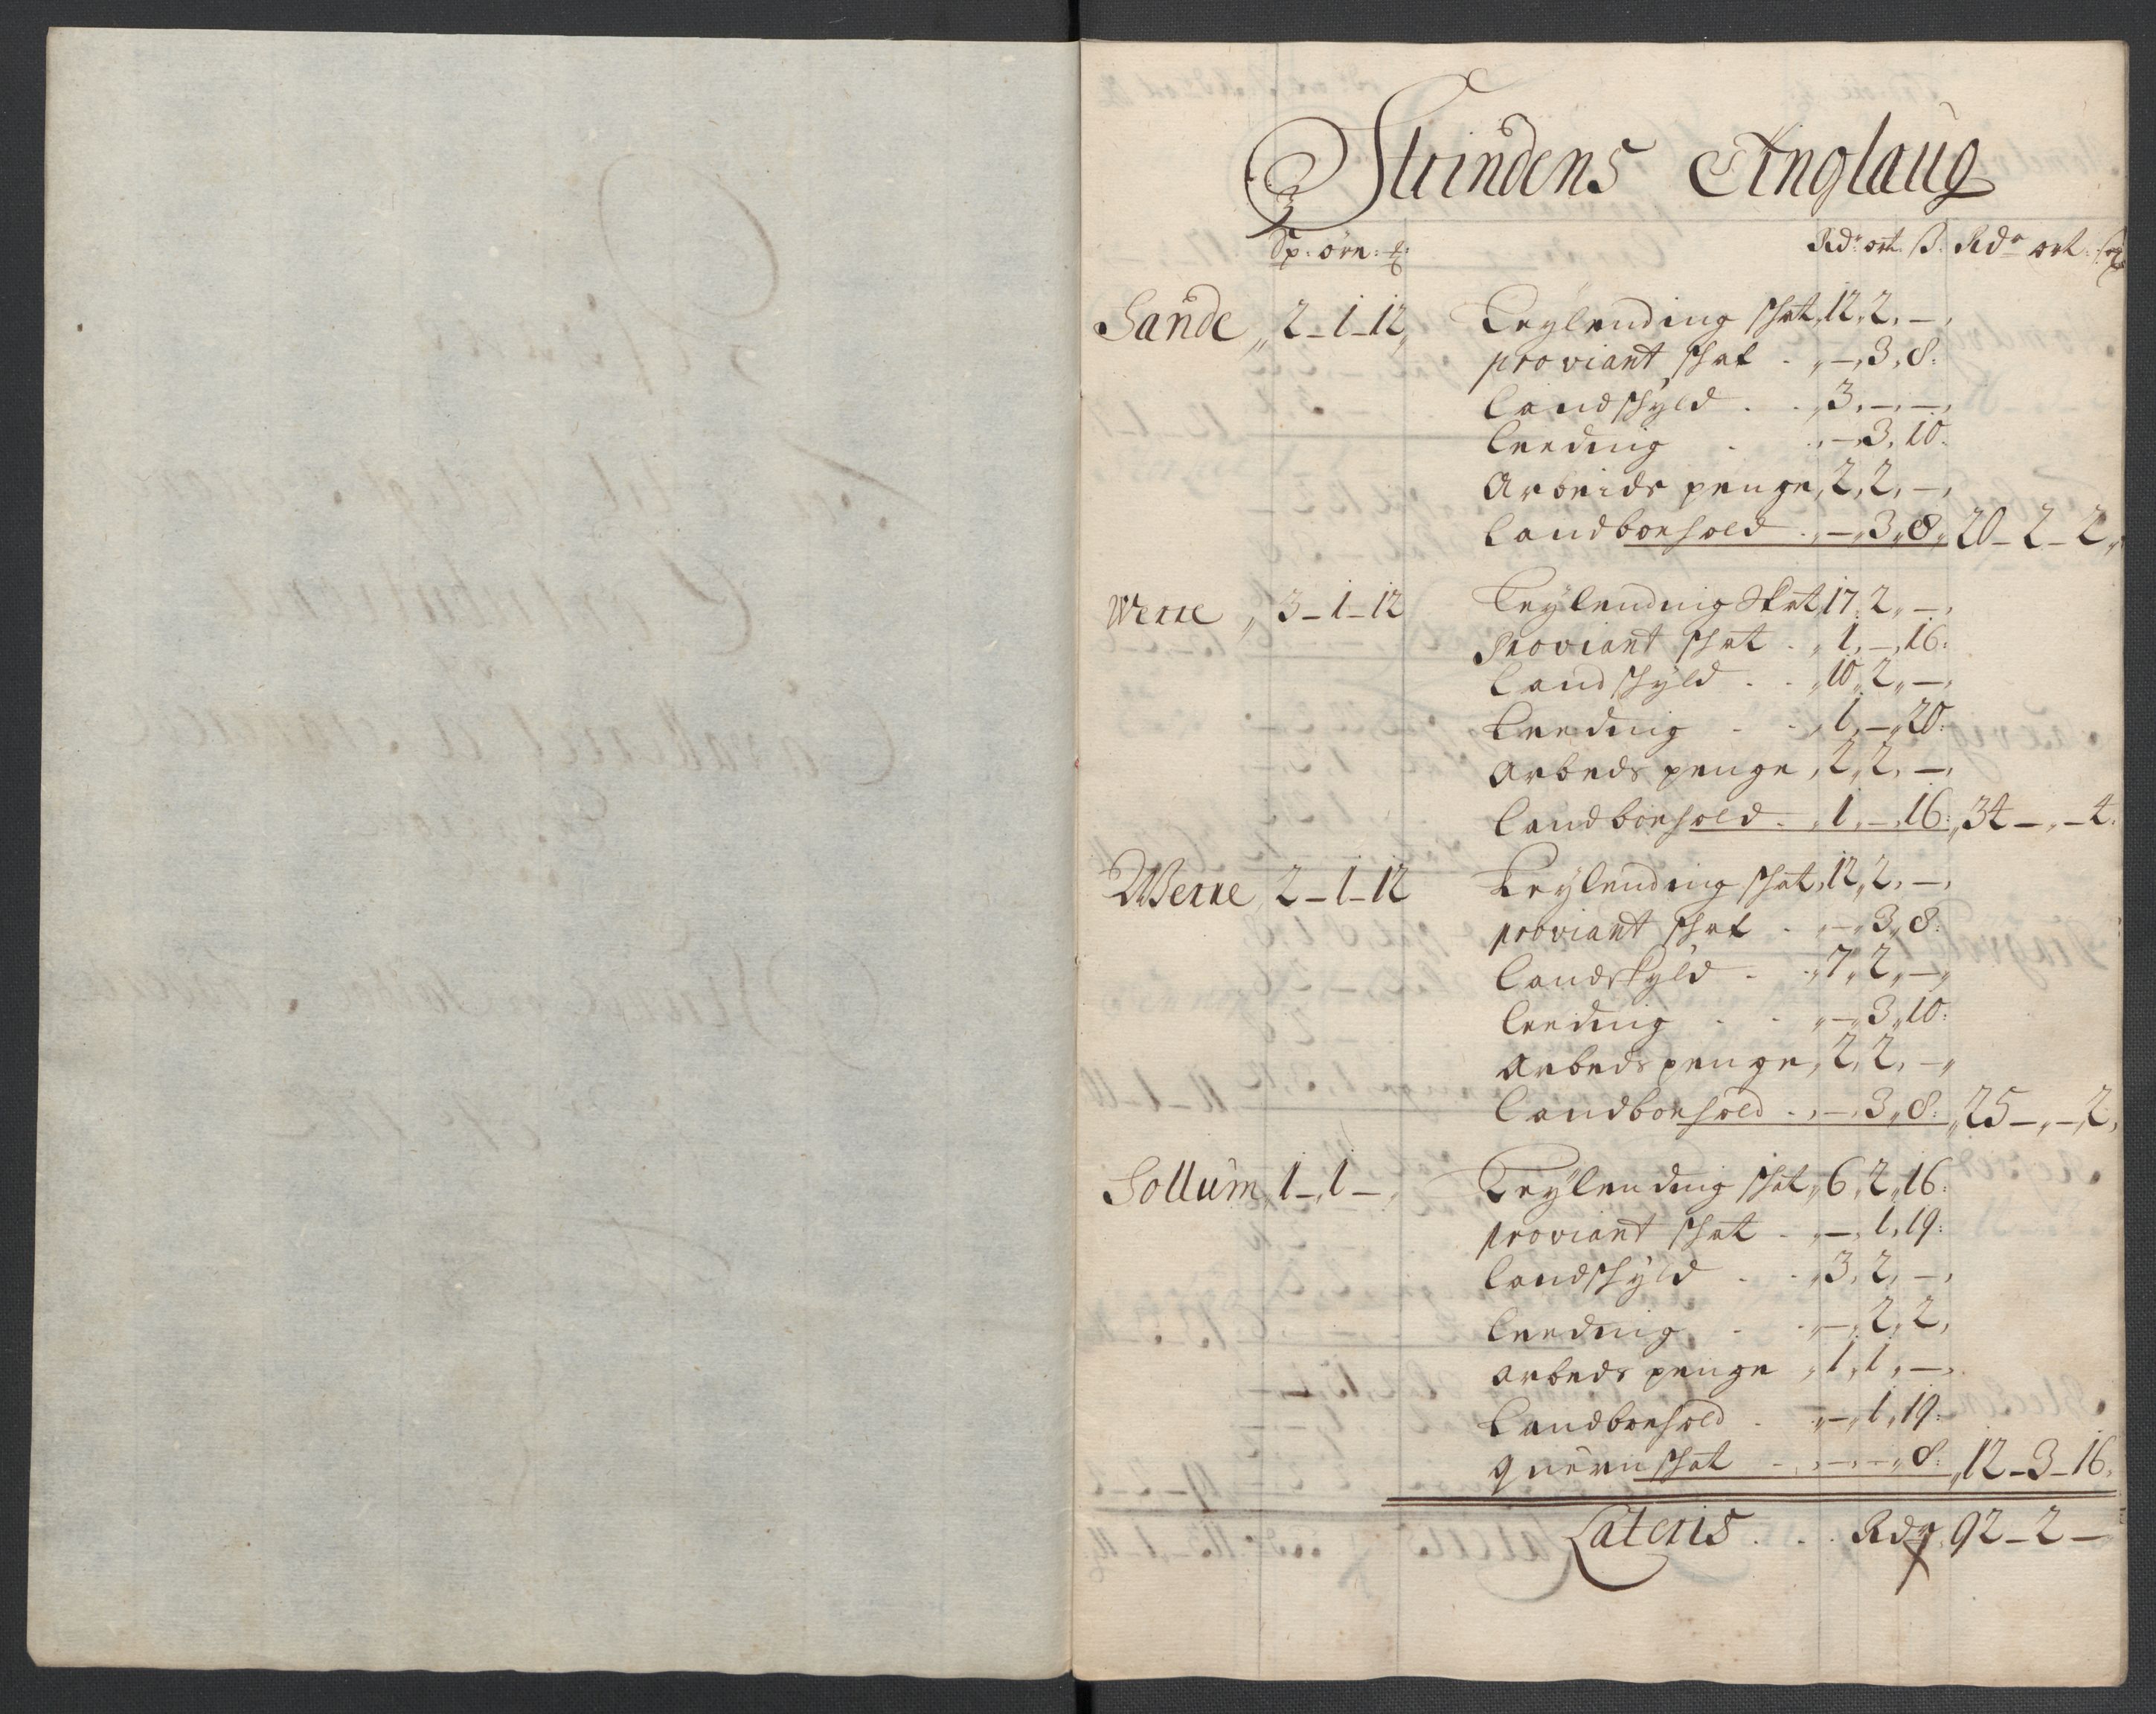 Strindens Tinglaug
Sp: ørn: ₰: Rdr ort. ß. Rdr ort. ß
Sande „ 2-1-12 „ Leylending skat, 12, 2, -,
proviant skat . „-, 3, 8:
Landskyld . . „3, -, -,
Leeding . . . -, 3, 10.
Arbeids penge, 2, 2, -,
Landboehold . . -„3„8„ 20_2_2„
Werre „ 3-1-12 Leylending Skat, 17, 2, -,
Proviant skat . „1, -, 16:
Landskyld . . „10„2„-,
Leeding . . „1, -„20:
Arbeds penge, 2, 2, -,
Landboehold . „1, -, 16:„34-, -4.
Werre 2-1-12 Leylending skat, 12„2, -,
proviant skat . „-„3„8:
Landskyld . „7„2„-„
Leeding . . „-„3„10:
Arbeds penge, 2, 2, -„
Landboehold . , -, 3„8: „25-„-2,
Sollum, 1-, 1-, Leylending skat, „6„2„16:
proviant skat . „-, 1, 19:
Landskyld . . „3, 2, -,
Leeding . . „-, 2, 2,
Arbeds penge „1, 1, -,
Landboehold . „-„1, 19:
quernskat . . -, -„8: „12-3-16,
Lateris . . Rdr 92-2-